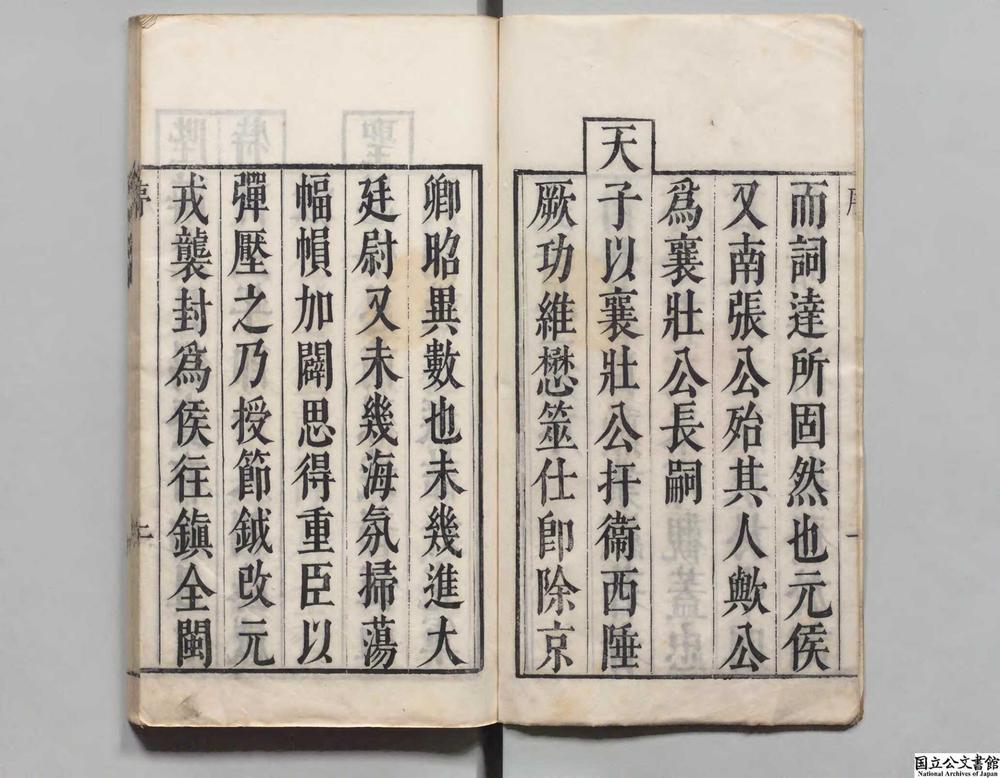 而詞達所固然也元侯
又南張公殆其人歟公
爲襄壯公長嗣
天子以襄壯公扞衞西陲
厥功維懋筮仕卽除京
卿昭異數也未幾進大
廷尉又未幾海氛掃蕩
幅幀加闢思得重臣以
彈壓之乃授節鉞改元
戎襲封爲侯往鎭全閩
序
二
国立公文書館
National Archives of Japan